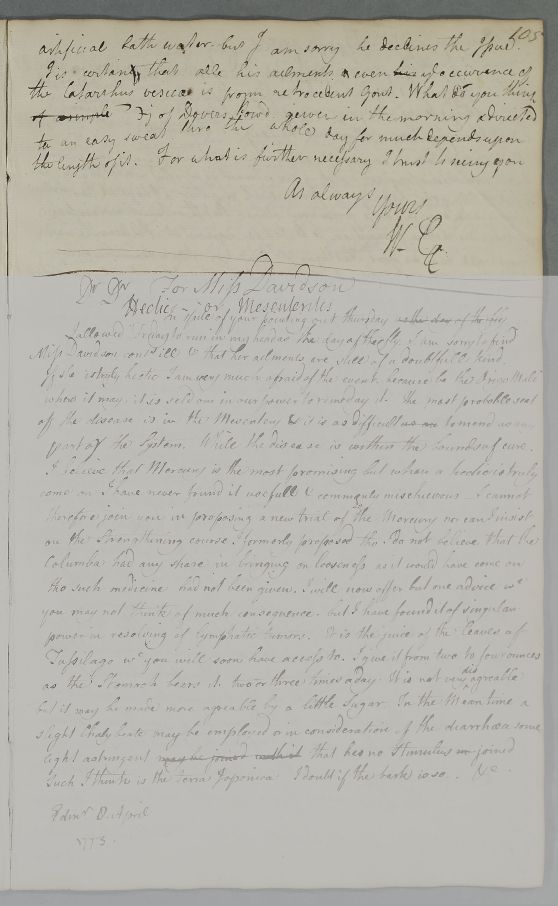 405
artificial bath water. but I am sorry he declines the Issue.
It is certain that all his ailments & even the occurrence of
the Catarrhus vesicæ is from retrocedent Gout. What do you think
of ʒj of Dovers Powd. given in the morning & directed
to an easy sweat thro the whole day for much depends upon
the length of it. For what is further necessary I trust to seeing you
As always
Yours
W. C.
Dr Gr For Miss Davidson
Hectic or Mesenterics
In spite of your pointing out thursday
I allowed friday to run in my head as the day of the fly. I am sorry to find
Miss Davidson continues ill & that her ailments are still of a doubtful kind
If she is truly hectic I am very much afraid of the event, because be the
where it may it is seldom in our power to remedy it. The most probable seat
of the disease is in the Mesentery & it is as difficult to mend as any
part of the System. While the disease is within the bounds of cure.
I believe that Mercury is the most promising but when a hectic is truly
come on I have never found it usefull & commonly mischievous. I cannot
therefore join you in proposing a new trial of the Mercury nor can I insist
on the Strengthening course I formerly proposed tho I do not believe that the
Columba had any share in bringing on looseness as it would have come on
tho such medicine had not been given. I will now offer but one advice wc
you may not think of much consequence. but I have found it of singular
power in resolving of lymphatic tumors. It is the juice of the leaves of
Tussilago wc you will soon have access to. I give it from two to four ounces
as the Stomach bears it two or three times a day. It is not very disagreeable
but it may be made more agreable by a little Sugar. In the Mean time a
slight Chalybeate may be employed or in consideration of the diarrhoea some
light astringent may be joined with it that has no Stimulus joined
Such I think is the terra Japonica. I doubt if the bark is so. &c.
Edinr 8. April
1773.